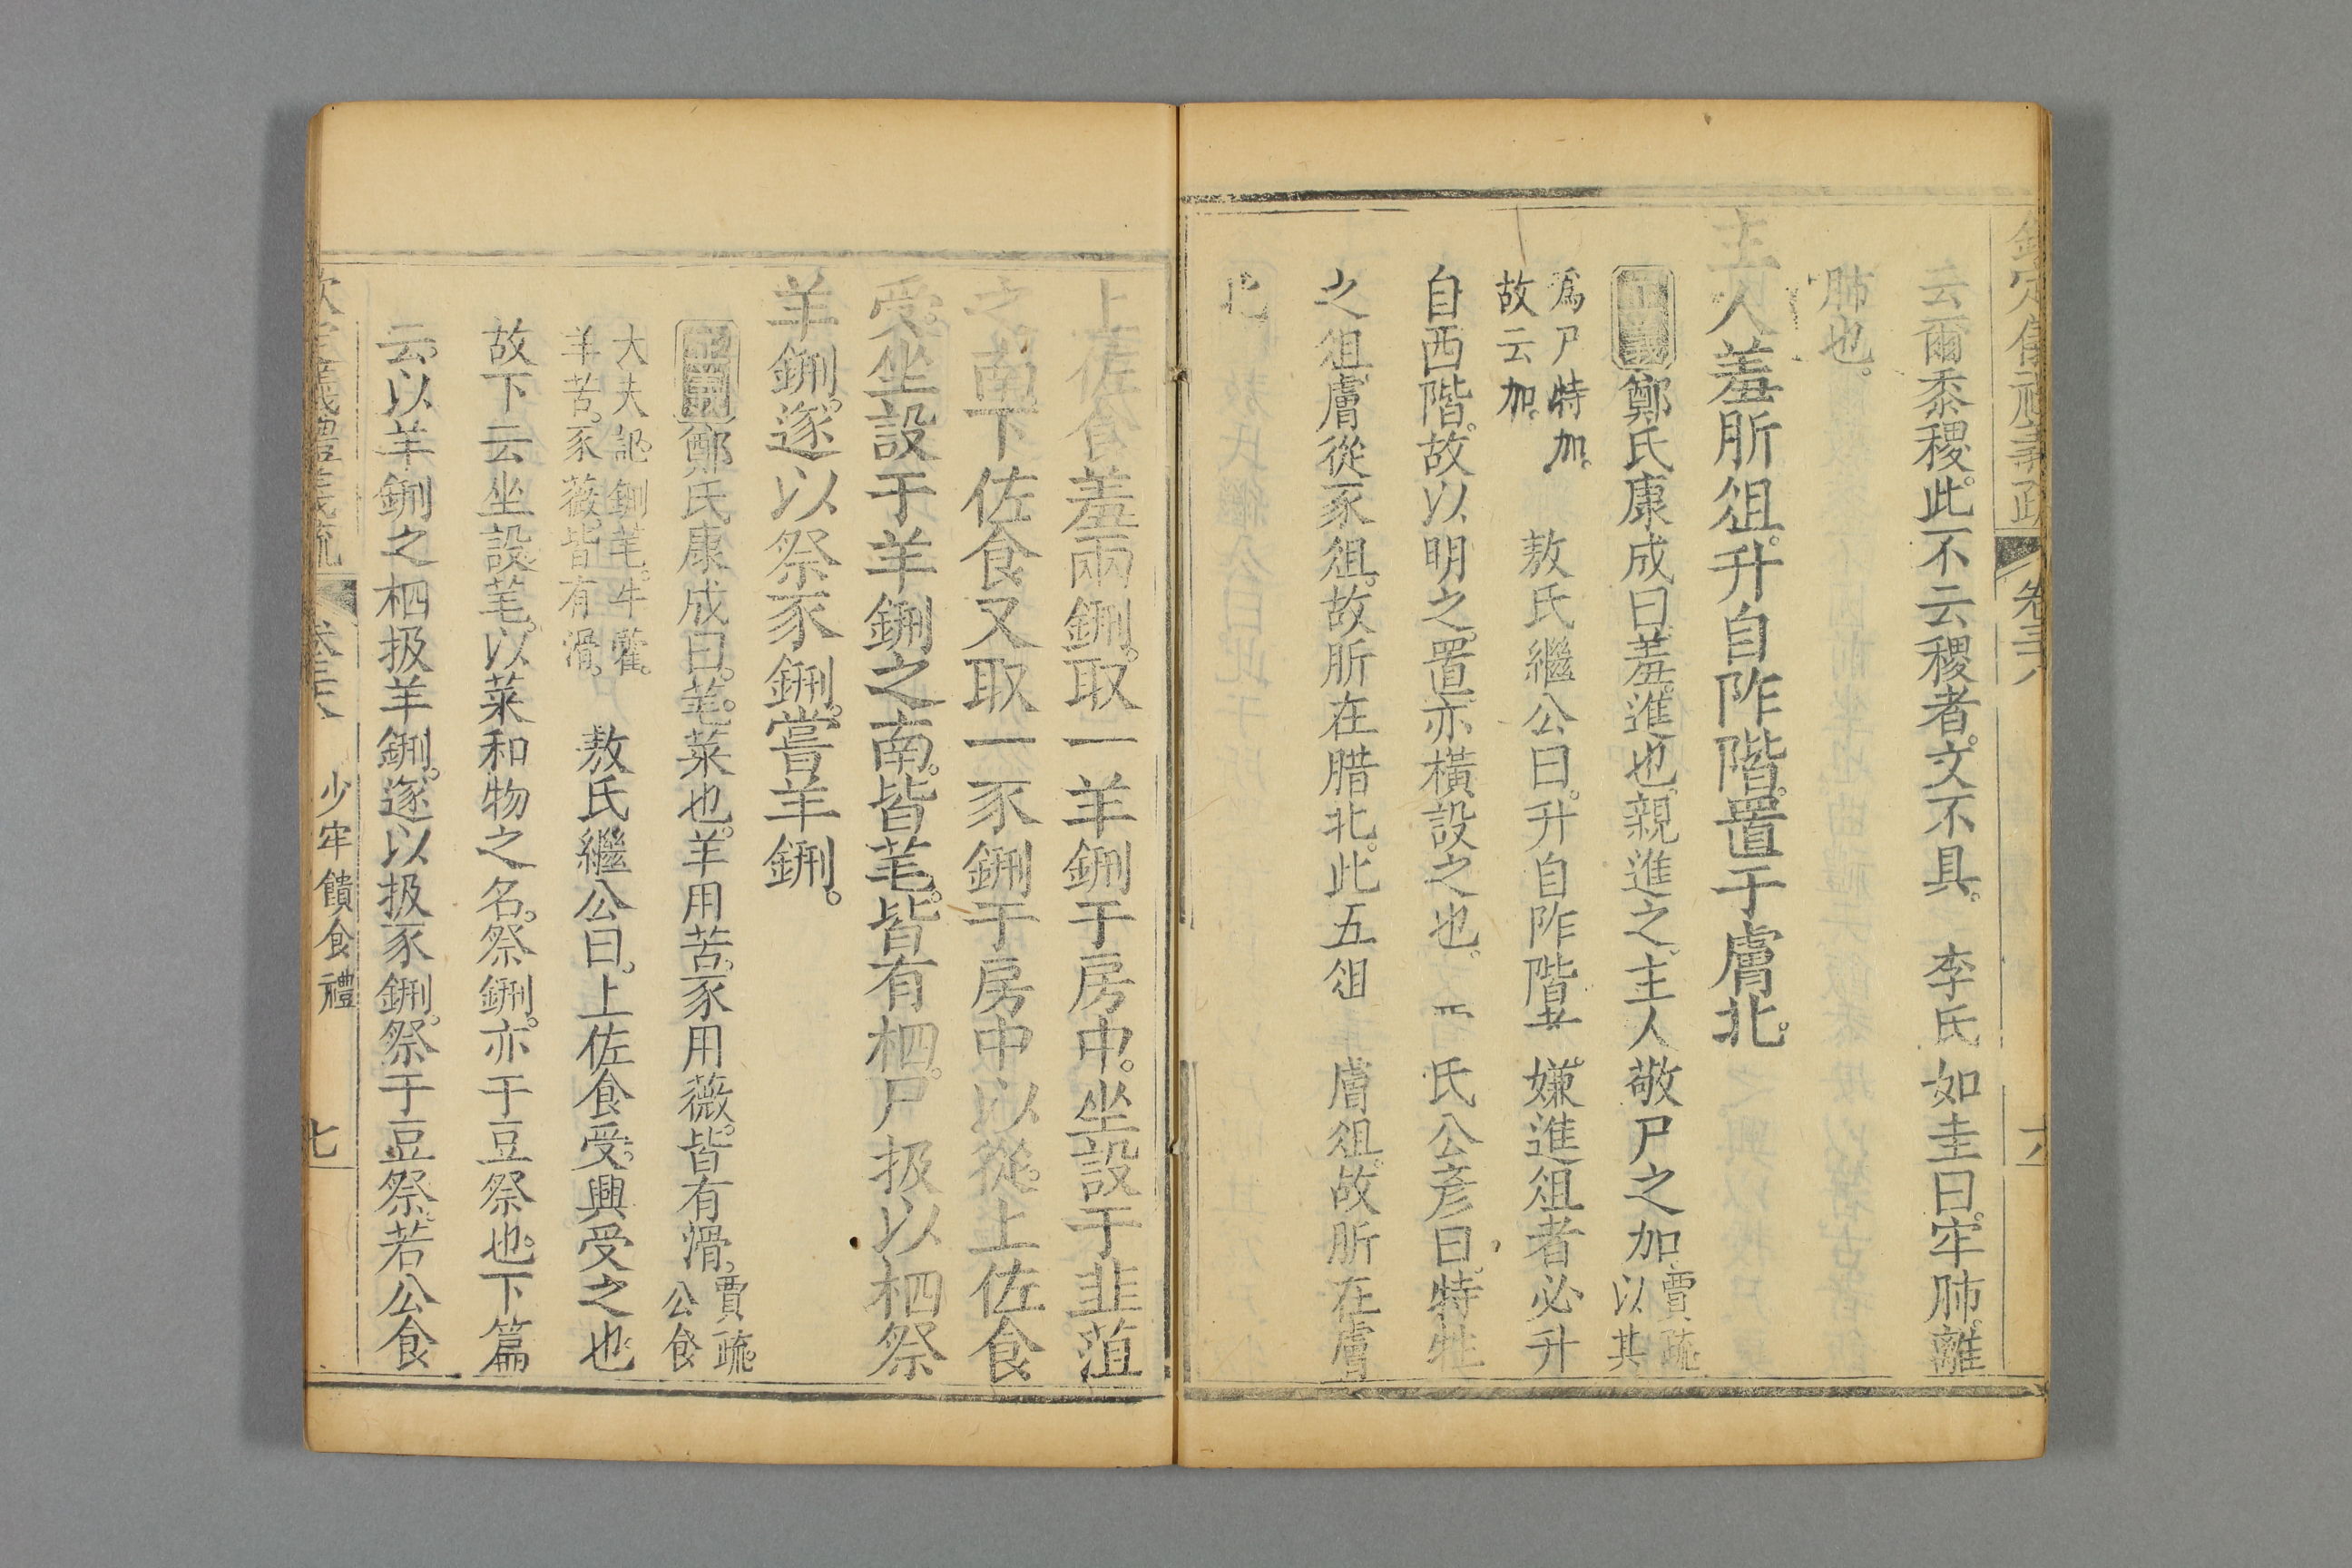 欽定儀禮義疏 卷三十八 六
云爾黍稷此不云稷者文不具。 李氏如圭曰牢肺離
肺也。
主人羞肵俎升自阼階置于膚北
正義 鄭氏康成曰羞進也親進之主人敬尸之加 賈疏以其
爲尸特加故云加 敖氏繼公曰升自阼階 嫌進俎者必升
自西階故以明之置亦橫設之也。 氏公彥曰特牲
之俎膚從豕俎故肵在腊北此五俎 膚俎故肵在膚
北
上佐食羞兩鉶取一羊鉶于房中坐設于韭菹
之南下佐食又取一豕鉶于房中以從上佐食
受坐設于羊鉶之南皆芼皆有柶尸扱以柶祭
羊鉶遂以祭豕鉶嘗羊鉶。
正義 鄭氏康成曰芼菜也羊用苦豕用薇皆有滑 賈疏公食
大夫記鉶芼牛藿羊苦豕薇皆有滑 敖氏繼公曰上佐食受興受之也
故下云坐設芼以菜和物之名祭鉶亦于豆祭也下篇
云以羊鉶之柶扱羊鉶遂以扱豕鉶祭于豆祭若公食
欽定儀禮義疏 卷三十八 少牢饋食禮 七